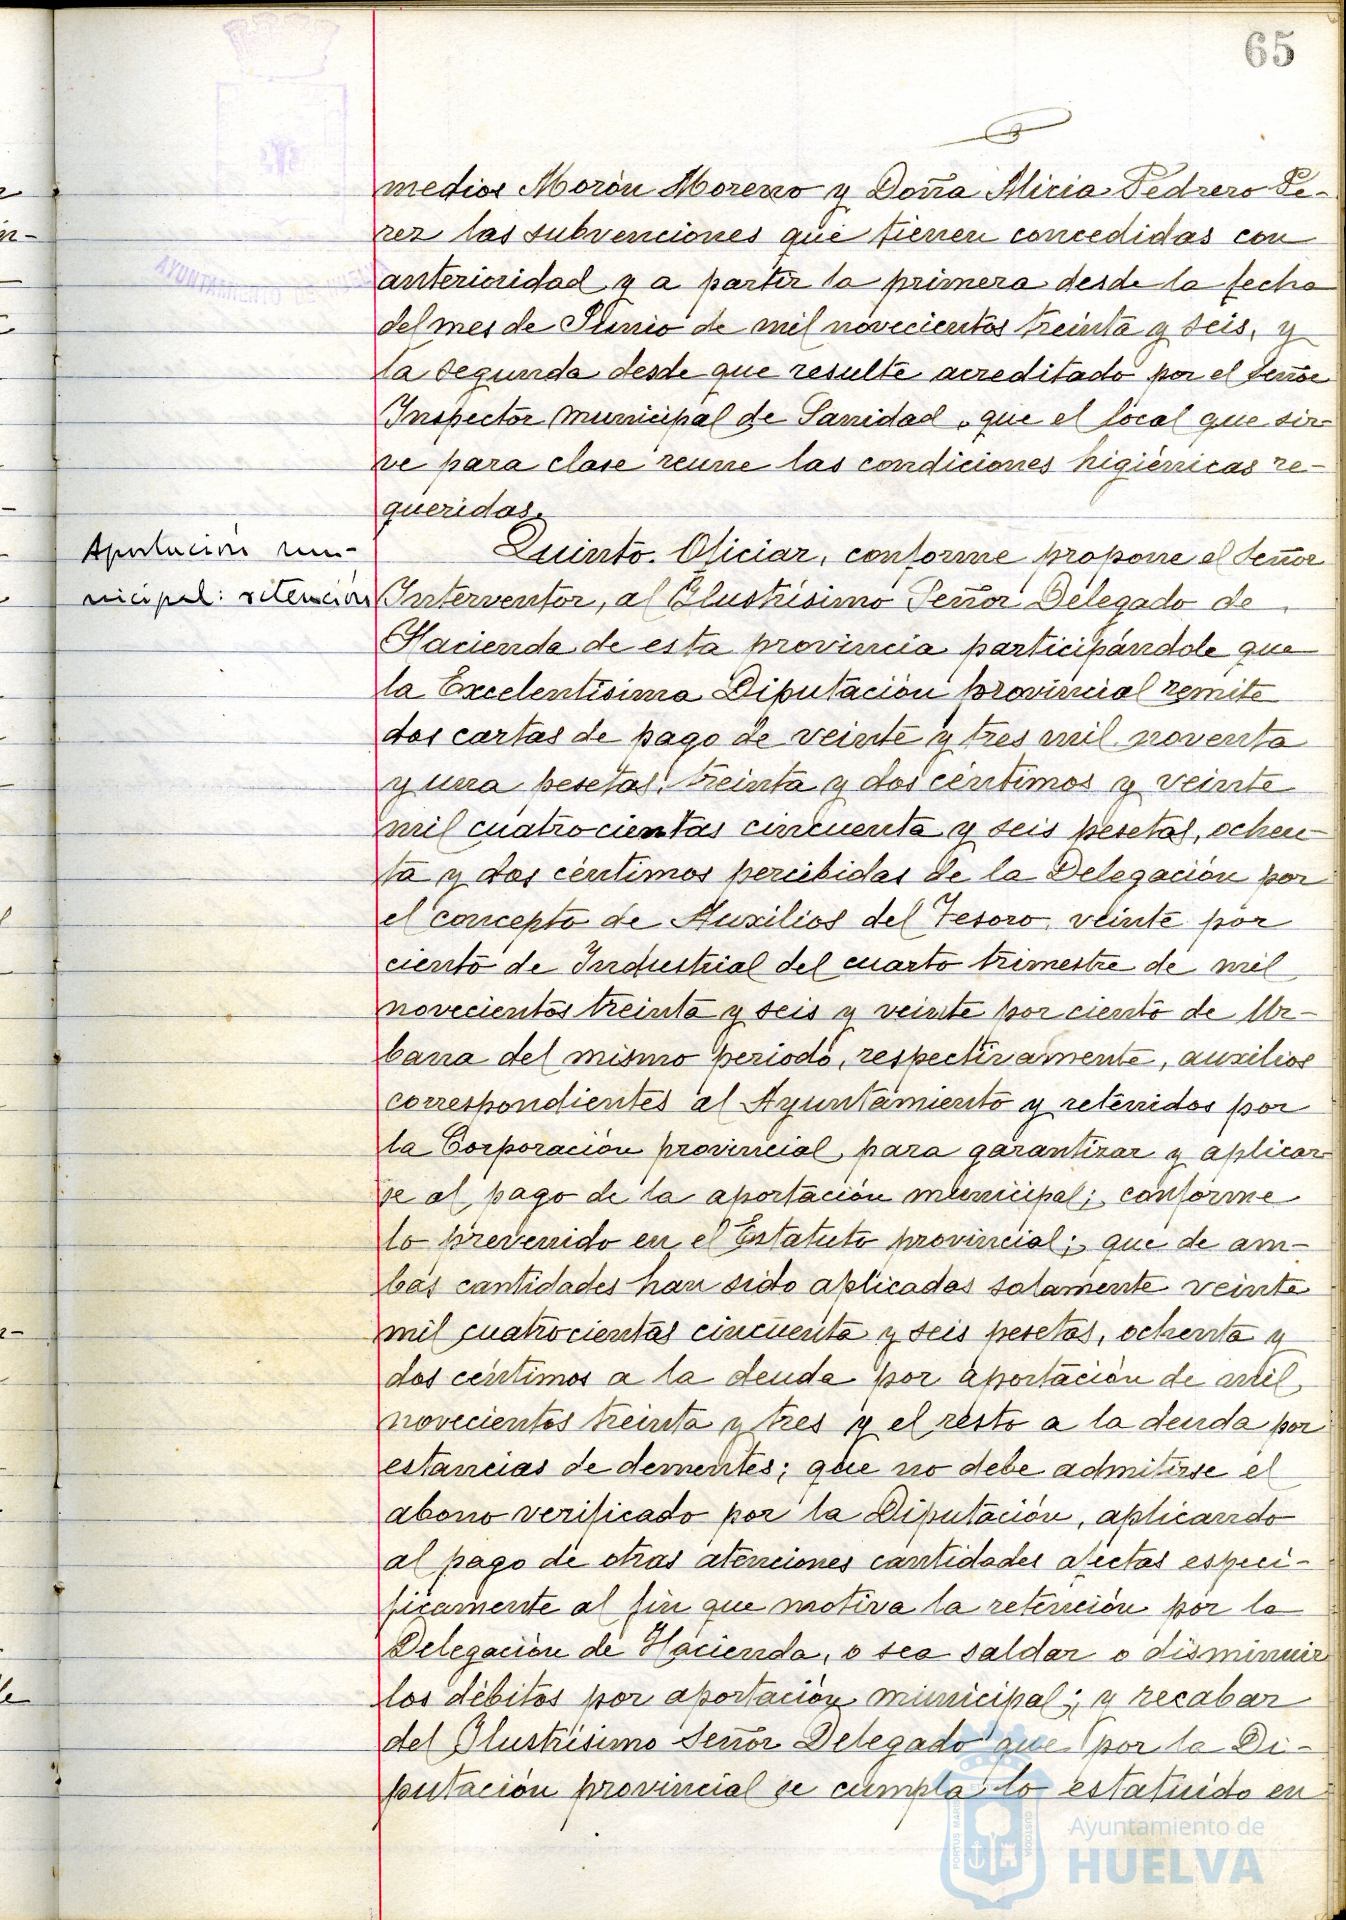 65
medios Morón Moreno y Doña Alicia Pedrero Pe-
rez las subvenciones que tienen concedidas con
anterioridad y a partir la primera desde la fecha
del mes de Junio de mil novecientos treinta y seis, y
la segunda desde que resulte acreditado por el Señor
Inspector municipal de Sanidad, que el local que sir-
ve para clase reune las condiciones higiénicas re-
queridas.
Aportación mu-
nicipal: retención
Quinto. Oficiar, conforme propone el Señor
Interventor, al Ilustrísimo Señor Delegado de
Hacienda de esta provincia participándole que
la Excelentísima Diputación provincial remite
dos cartas de pago de veinte y tres mil noventa
y una pesetas, treinta y dos céntimos y veinte
mil cuatrocientas cincuenta y seis pesetas, ochen-
ta y dos céntimos percibidas de la Delegación por
el concepto de Auxilios del Tesoro, veinte por
ciento de Industrial del cuarto trimestre de mil
novecientos treinta y seis y veinte por ciento de Ur-
bana del mismo periodo, respectivamente, auxilios
correspondientes al Ayuntamiento y retenidos por
la Corporación provincial, para garantizar y aplicar-
se al pago de la aportación municipal; conforme
lo prevenido en el Estatuto provincial; que de am-
bas cantidades han sido aplicadas solamente veinte
mil cuatrocientas cincuenta y seis pesetas, ochenta y
dos céntimos a la deuda por aportación de mil
novecientos treinta y tres y el resto a la deuda por
estancias de dementes; que no debe admitirse el
abono verificado por la Diputación, aplicando
al pago de otras atenciones cantidades afectas especí-
ficamente al fin que motiva la retención por la
Delegación de Hacienda, o sea saldar o disminuir
los débitos por aportación municipal; y recabar
del Ilustrísimo Señor Delegado que por la Di-
putación provincial se cumpla lo estatuído en
AYUNTAMIENTO DE HUELVA
Ayuntamiento de
HUELVA